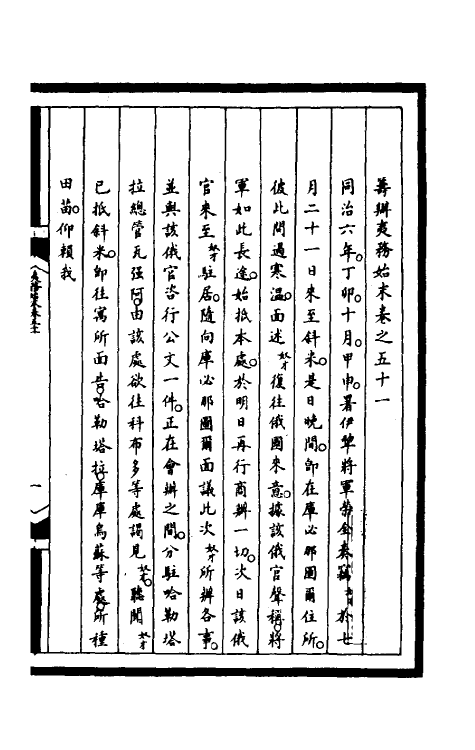 籌辦夷務始末卷之五十一
同治六年。丁卯。十月。甲申。署伊犂將軍榮全奏竊於七
月二十一日來至斜米。是日晚間。卽在庫必那圖爾住所。
彼此問過寒溫。面述奴才復往俄國來意。據該俄官聲稱。將
軍如此長途。始抵本處。於明日再行商辦一切。次日該俄
官來至奴才駐居。隨向庫必那圖爾面議此次奴才所辦各事。
並與該俄官咨行公文一件。正在會辦之間。分駐哈勒塔
拉總管瓦强阿。由該處欲往科布多等處謁見奴才。聽聞奴才
已抵斜米。卽往寓所面吿。哈勒塔拉。庫庫烏蘇等處。所種
田苗。仰賴我
一